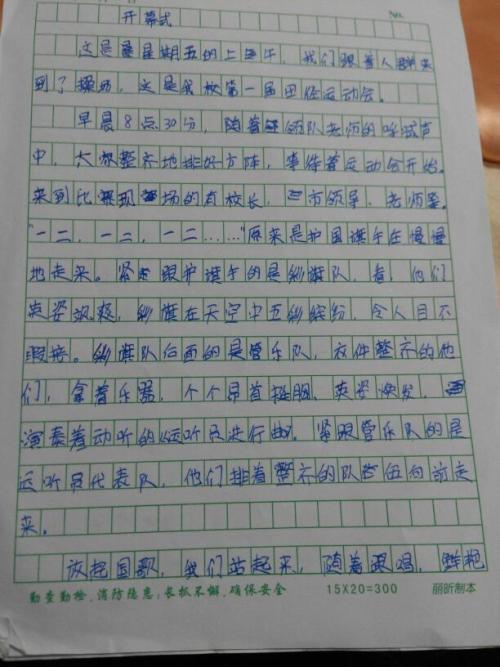 No.
开幕式
这是星期五的上午，我们跟着人群来
到了操场，这是我校第一届田径运动会。
早晨8点30分，随着领队老师的呼喊声
中，大都整齐地排好方阵，事件着运动会开始。
来到比赛现场的有校长，市领导，老师等。
“一二，一二，一二……”原来是护国旗手在慢慢
地走来。紧跟护旗手的是彩旗队，看，他们
英姿飒爽，彩旗在天空中五彩缤纷，令人目不
暇接。彩旗队后面的是管乐队，衣件整齐的他
们，拿着乐器，个个昂首挺胸，英姿焕发，
演奏着动听的《运动员进行曲。紧跟管乐队的是
运动员代表队，他们排着整齐的队伍向前走
来。
放起国歌，我们站起来，随着跟唱，鲜艳
勤查勤检，消防隐患；长抓不懈，确保安全 15X20=300 丽昕制本